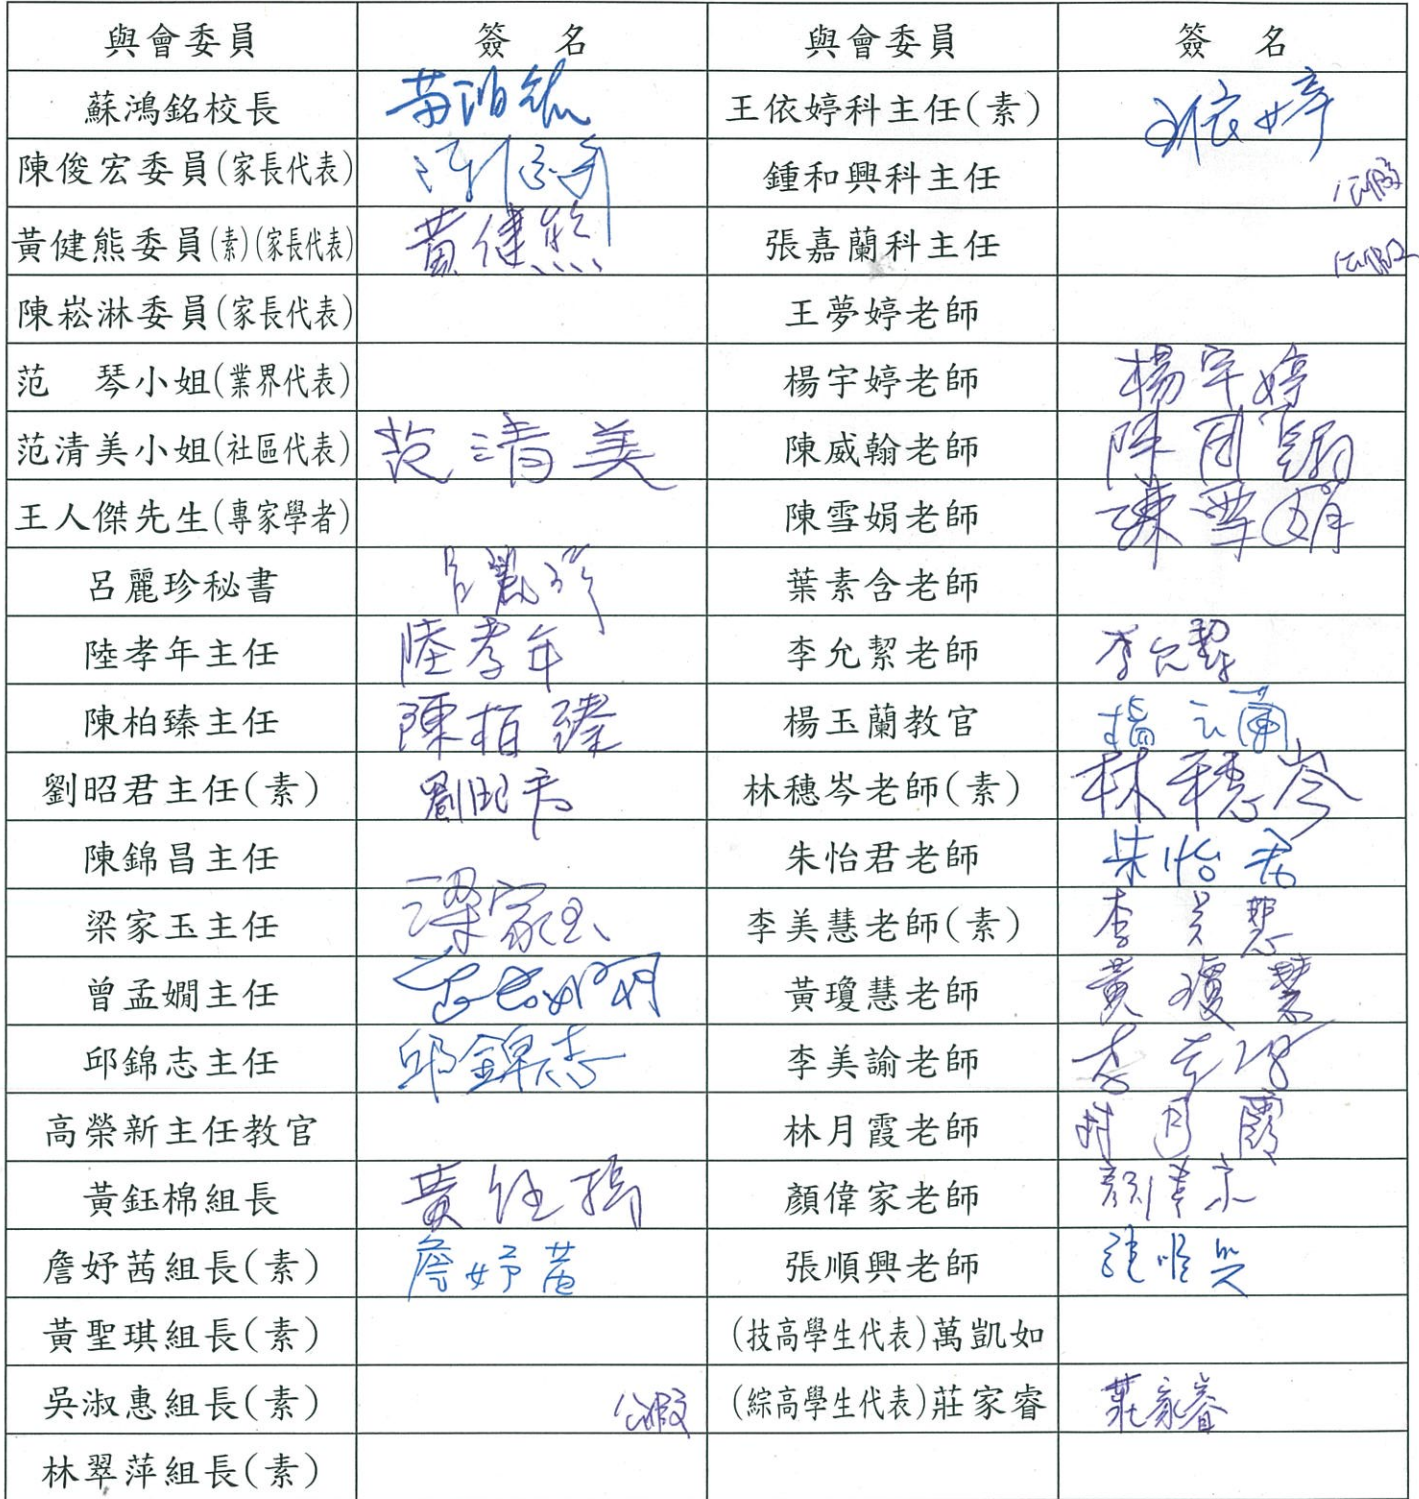 與會委員 簽名 與會委員 簽名
蘇鴻銘校長 王依婷科主任(素) 王依婷
陳俊宏委員(家長代表) 陳俊宏 鍾和興科主任 公假
黃健熊委員(素)(家長代表) 黃健熊 張嘉蘭科主任 公假
陳崧淋委員(家長代表) 王夢婷老師
范 琴小姐(業界代表) 楊宇婷老師 楊宇婷
范清美小姐(社區代表) 范清美 陳威翰老師 陳威翰
王人傑先生(專家學者) 陳雪娟老師 陳雪娟
呂麗珍秘書 呂麗珍 葉素含老師
陸孝年主任 陸孝年 李允絜老師 李允絜
陳柏臻主任 陳柏臻 楊玉蘭教官 楊玉蘭
劉昭君主任(素) 劉昭君 林穗岑老師(素) 林穗岑
陳錦昌主任 朱怡君老師 朱怡君
梁家玉主任 梁家玉 李美慧老師(素) 李美慧
曾孟嫺主任 曾孟嫺 黃瓊慧老師 黃瓊慧
邱錦志主任 邱錦志 李美諭老師 李美諭
高榮新主任教官 林月霞老師 林月霞
黃鈺棉組長 黃鈺棉 顏偉家老師 顏偉家
詹妤茜組長(素) 詹妤茜 張順興老師 張順興
黃聖琪組長(素) (技高學生代表)萬凱如
吳淑惠組長(素) 公假 (綜高學生代表)莊家睿 莊家睿
林翠萍組長(素)